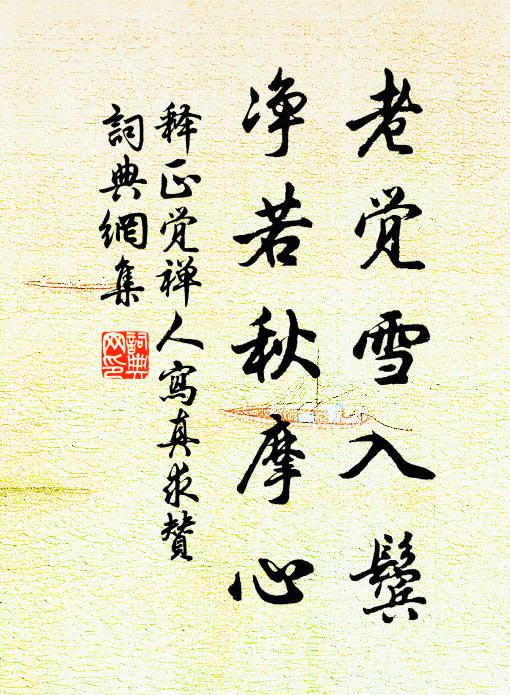 老觉雪入鬓
净若秋摩心
释正觉禅人寫真求赞
詞典網集
詞典网印